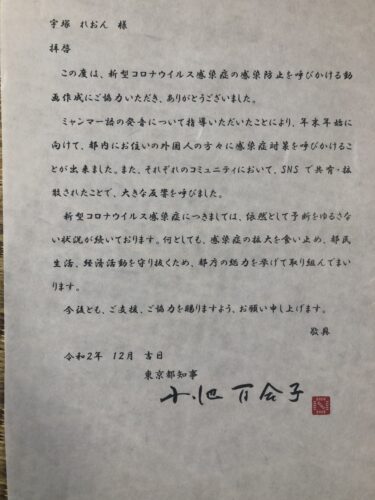 宇塚 れおん 様
拝啓
この度は、新型コロナウイルス感染症の感染防止を呼びかける動
画作成にご協力いただき、ありがとうございました。
ミャンマー語の発音について指導いただいたことにより、年末年始に
向けて、都内にお住いの外国人の方々に感染症対策を呼びかけるこ
とが出来ました。また、それぞれのコミュニティにおいて、SNSで共有・拡
散されたことで、大きな反響を呼びました。
新型コロナウイルス感染症につきましては、依然として予断をゆるさな
い状況が続いております。何としても、感染症の拡大を食い止め、都民
生活、経済活動を守り抜くため、都庁の総力を挙げて取り組んでまい
ります。
今後とも、ご支援、ご協力を賜りますよう、お願い申し上げます。
敬具
令和2年 12月 吉日
東京都知事
小池百合子